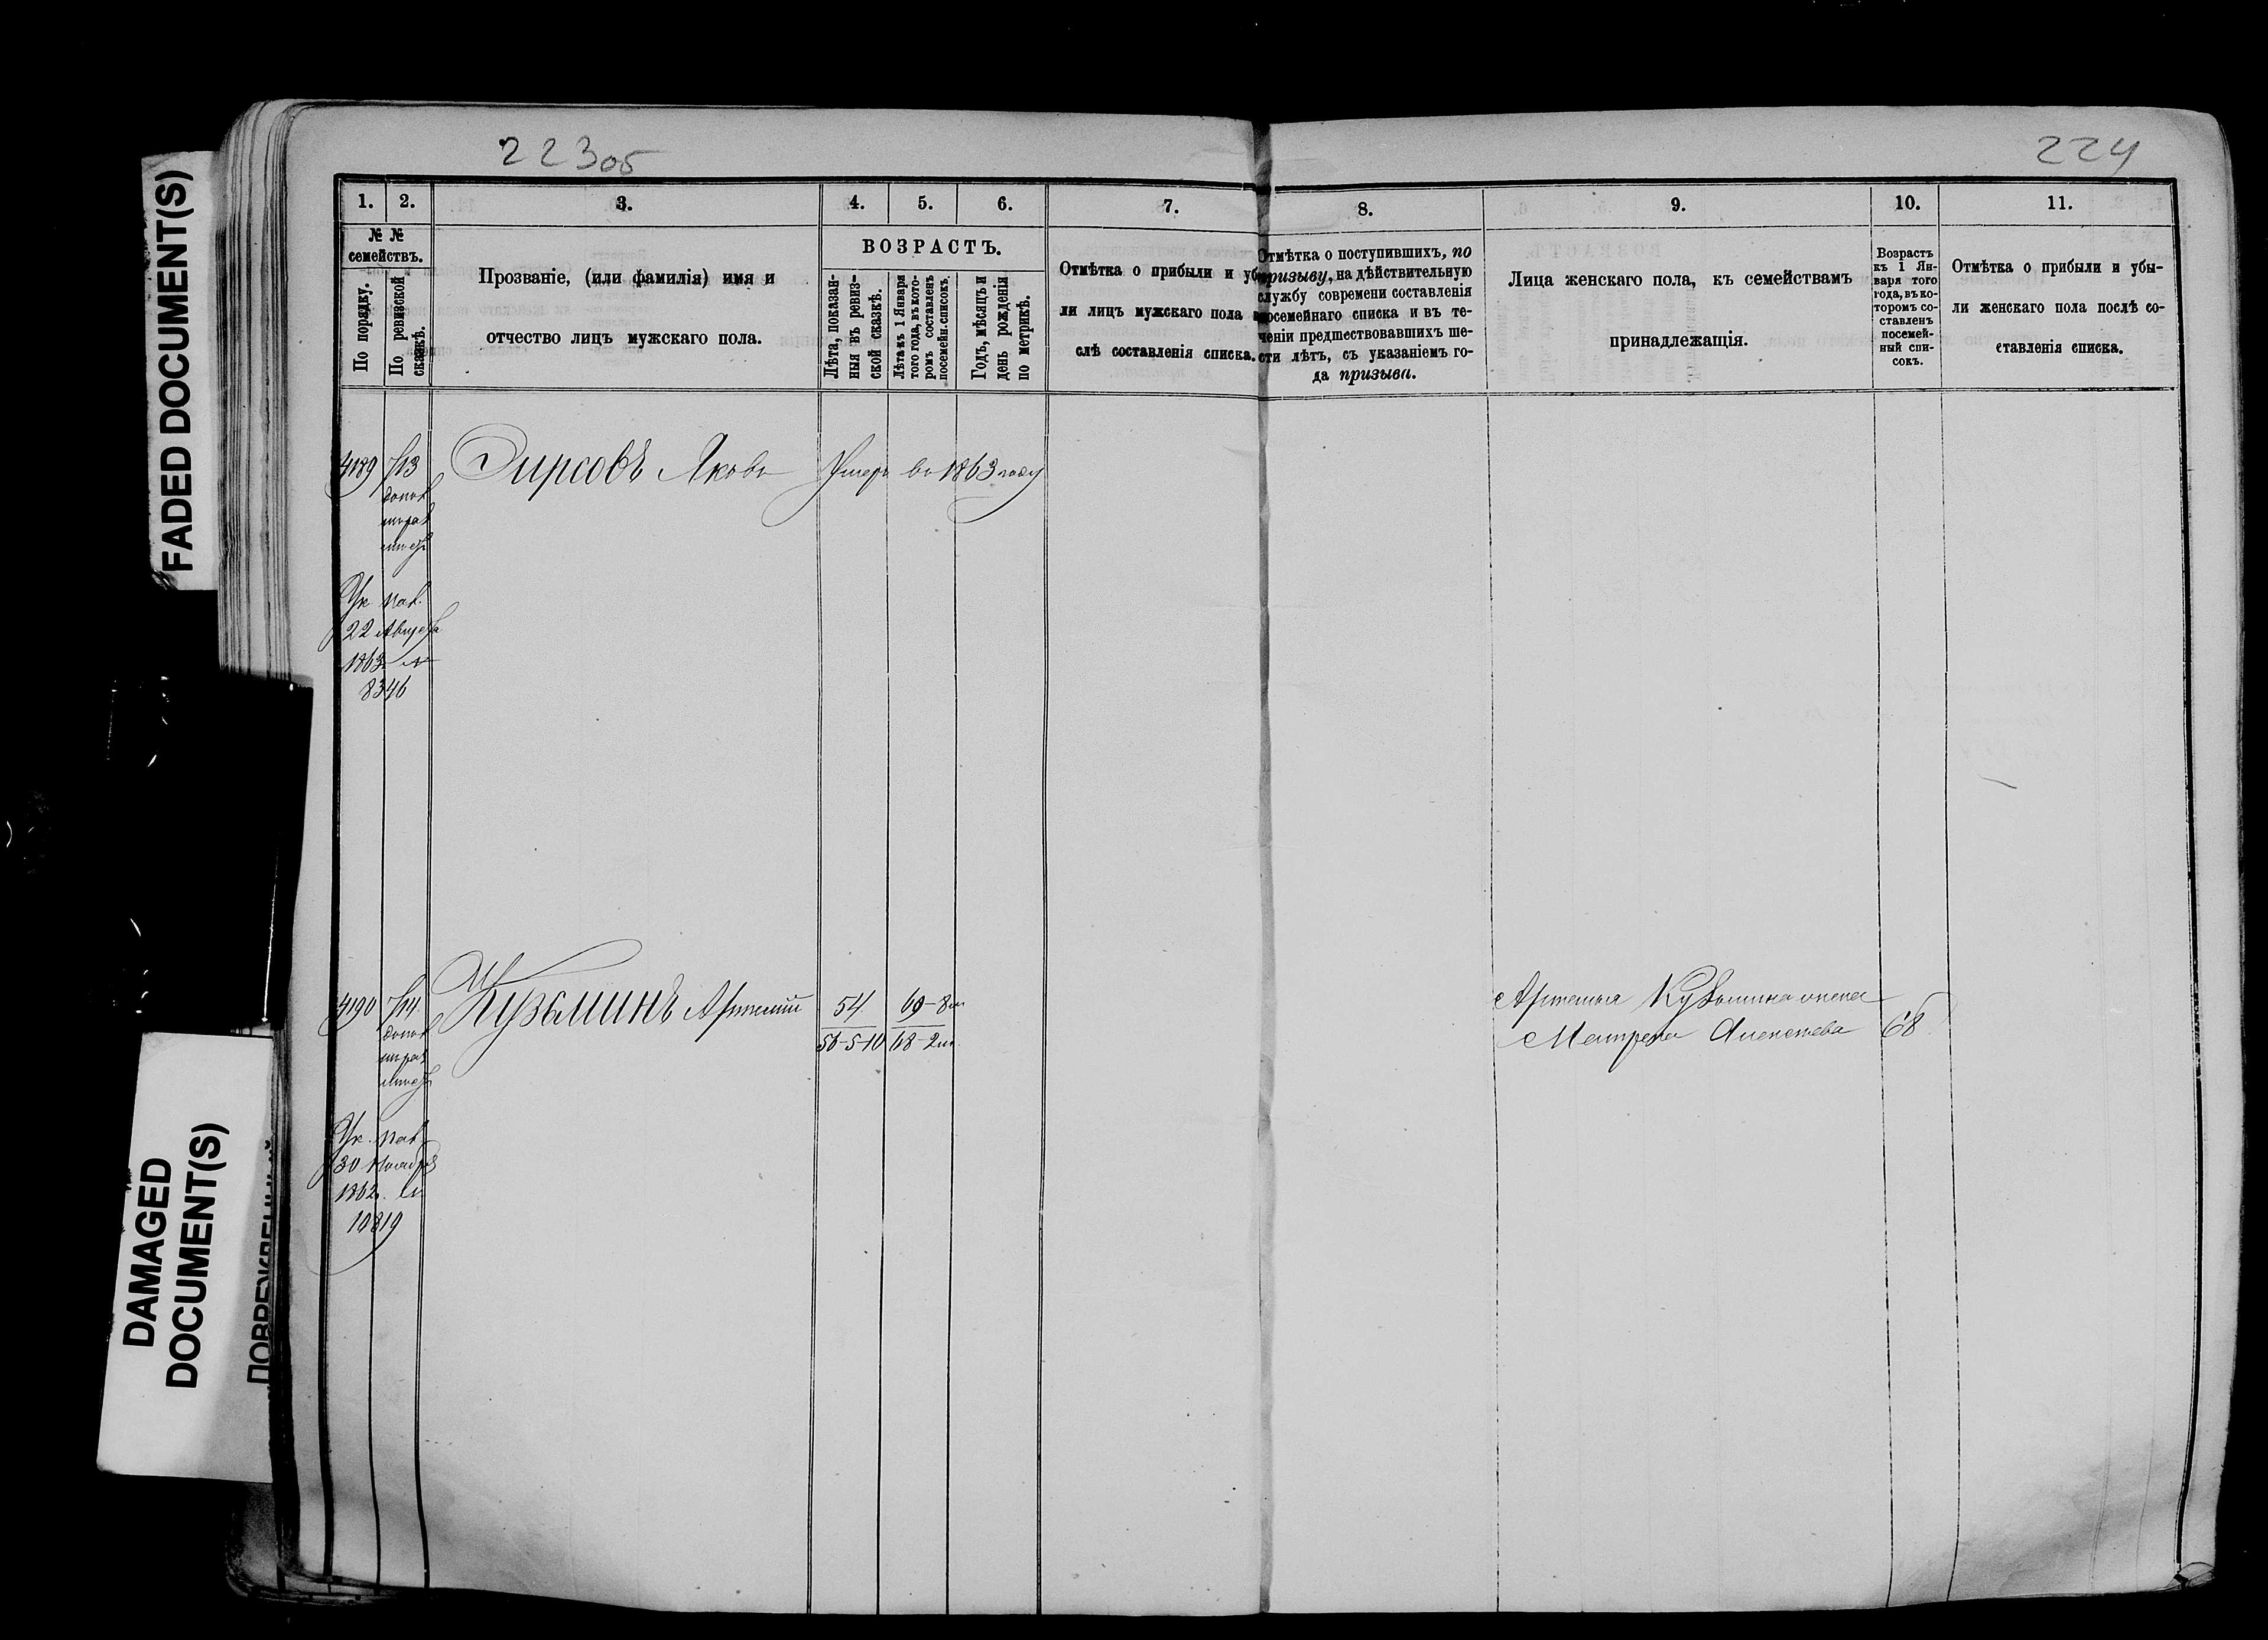 FADED DOCUMENT(S)
DAMAGED
DOCUMENT(S)
223об
224
1. 2. 3. 4. 5. 6. 7. 8. 9. 10. 11.
№ №
семействъ.
По порядку.
По ревизской
сказкѣ.
Прозваніе, (или фамилія) имя и
отчество лицъ мужскаго пола.
ВОЗРАСТЪ.
Лѣта, показан-
ныя въ ревиз-
ской сказкѣ.
Лѣта къ 1 Января
того года, въ кото-
ромъ составленъ
посемейн. списокъ.
Годъ, мѣсяцъ и
день рожденія
по метрикѣ.
Отмѣтка о прибыли и убы-
ли лицъ мужскаго пола
слѣ составленія списка.
Отмѣтка о поступившихъ, по
призыву, на дѣйствительную
службу современи составленія
посемейнаго списка и въ те-
ченіи предшествовавшихъ ше-
сти лѣтъ, съ указаніемъ го-
да призыва.
Лица женскаго пола, къ семействамъ
принадлежащія.
Возрастъ
къ 1 Ян-
варя того
года, въ ко-
торомъ со-
ставленъ
посемей-
ный спи-
сокъ.
Отмѣтка о прибыли и убы-
ли женскаго пола послѣ со-
ставленія списка.
4189 713 Фирсовъ Яковъ Умеръ въ 1863 году
Ук. пал.
22 Августа
1863 г. №
8346
4190 714 Кузьминъ Артемій 54 69-8м
56-5-10 68-2м
Артемья Кузьмина жена
Матрена Алексѣева 68
Ук. пал.
30 Ноября
1862 г. №
10819